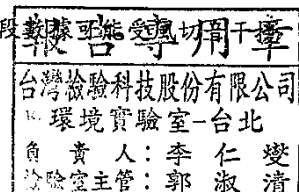 段數據可能受風切周干擾
報告專用章
台灣檢驗科技股份有限公司
環境實驗室-台北
負責人：李仁燮
檢驗室主管：郭淑清